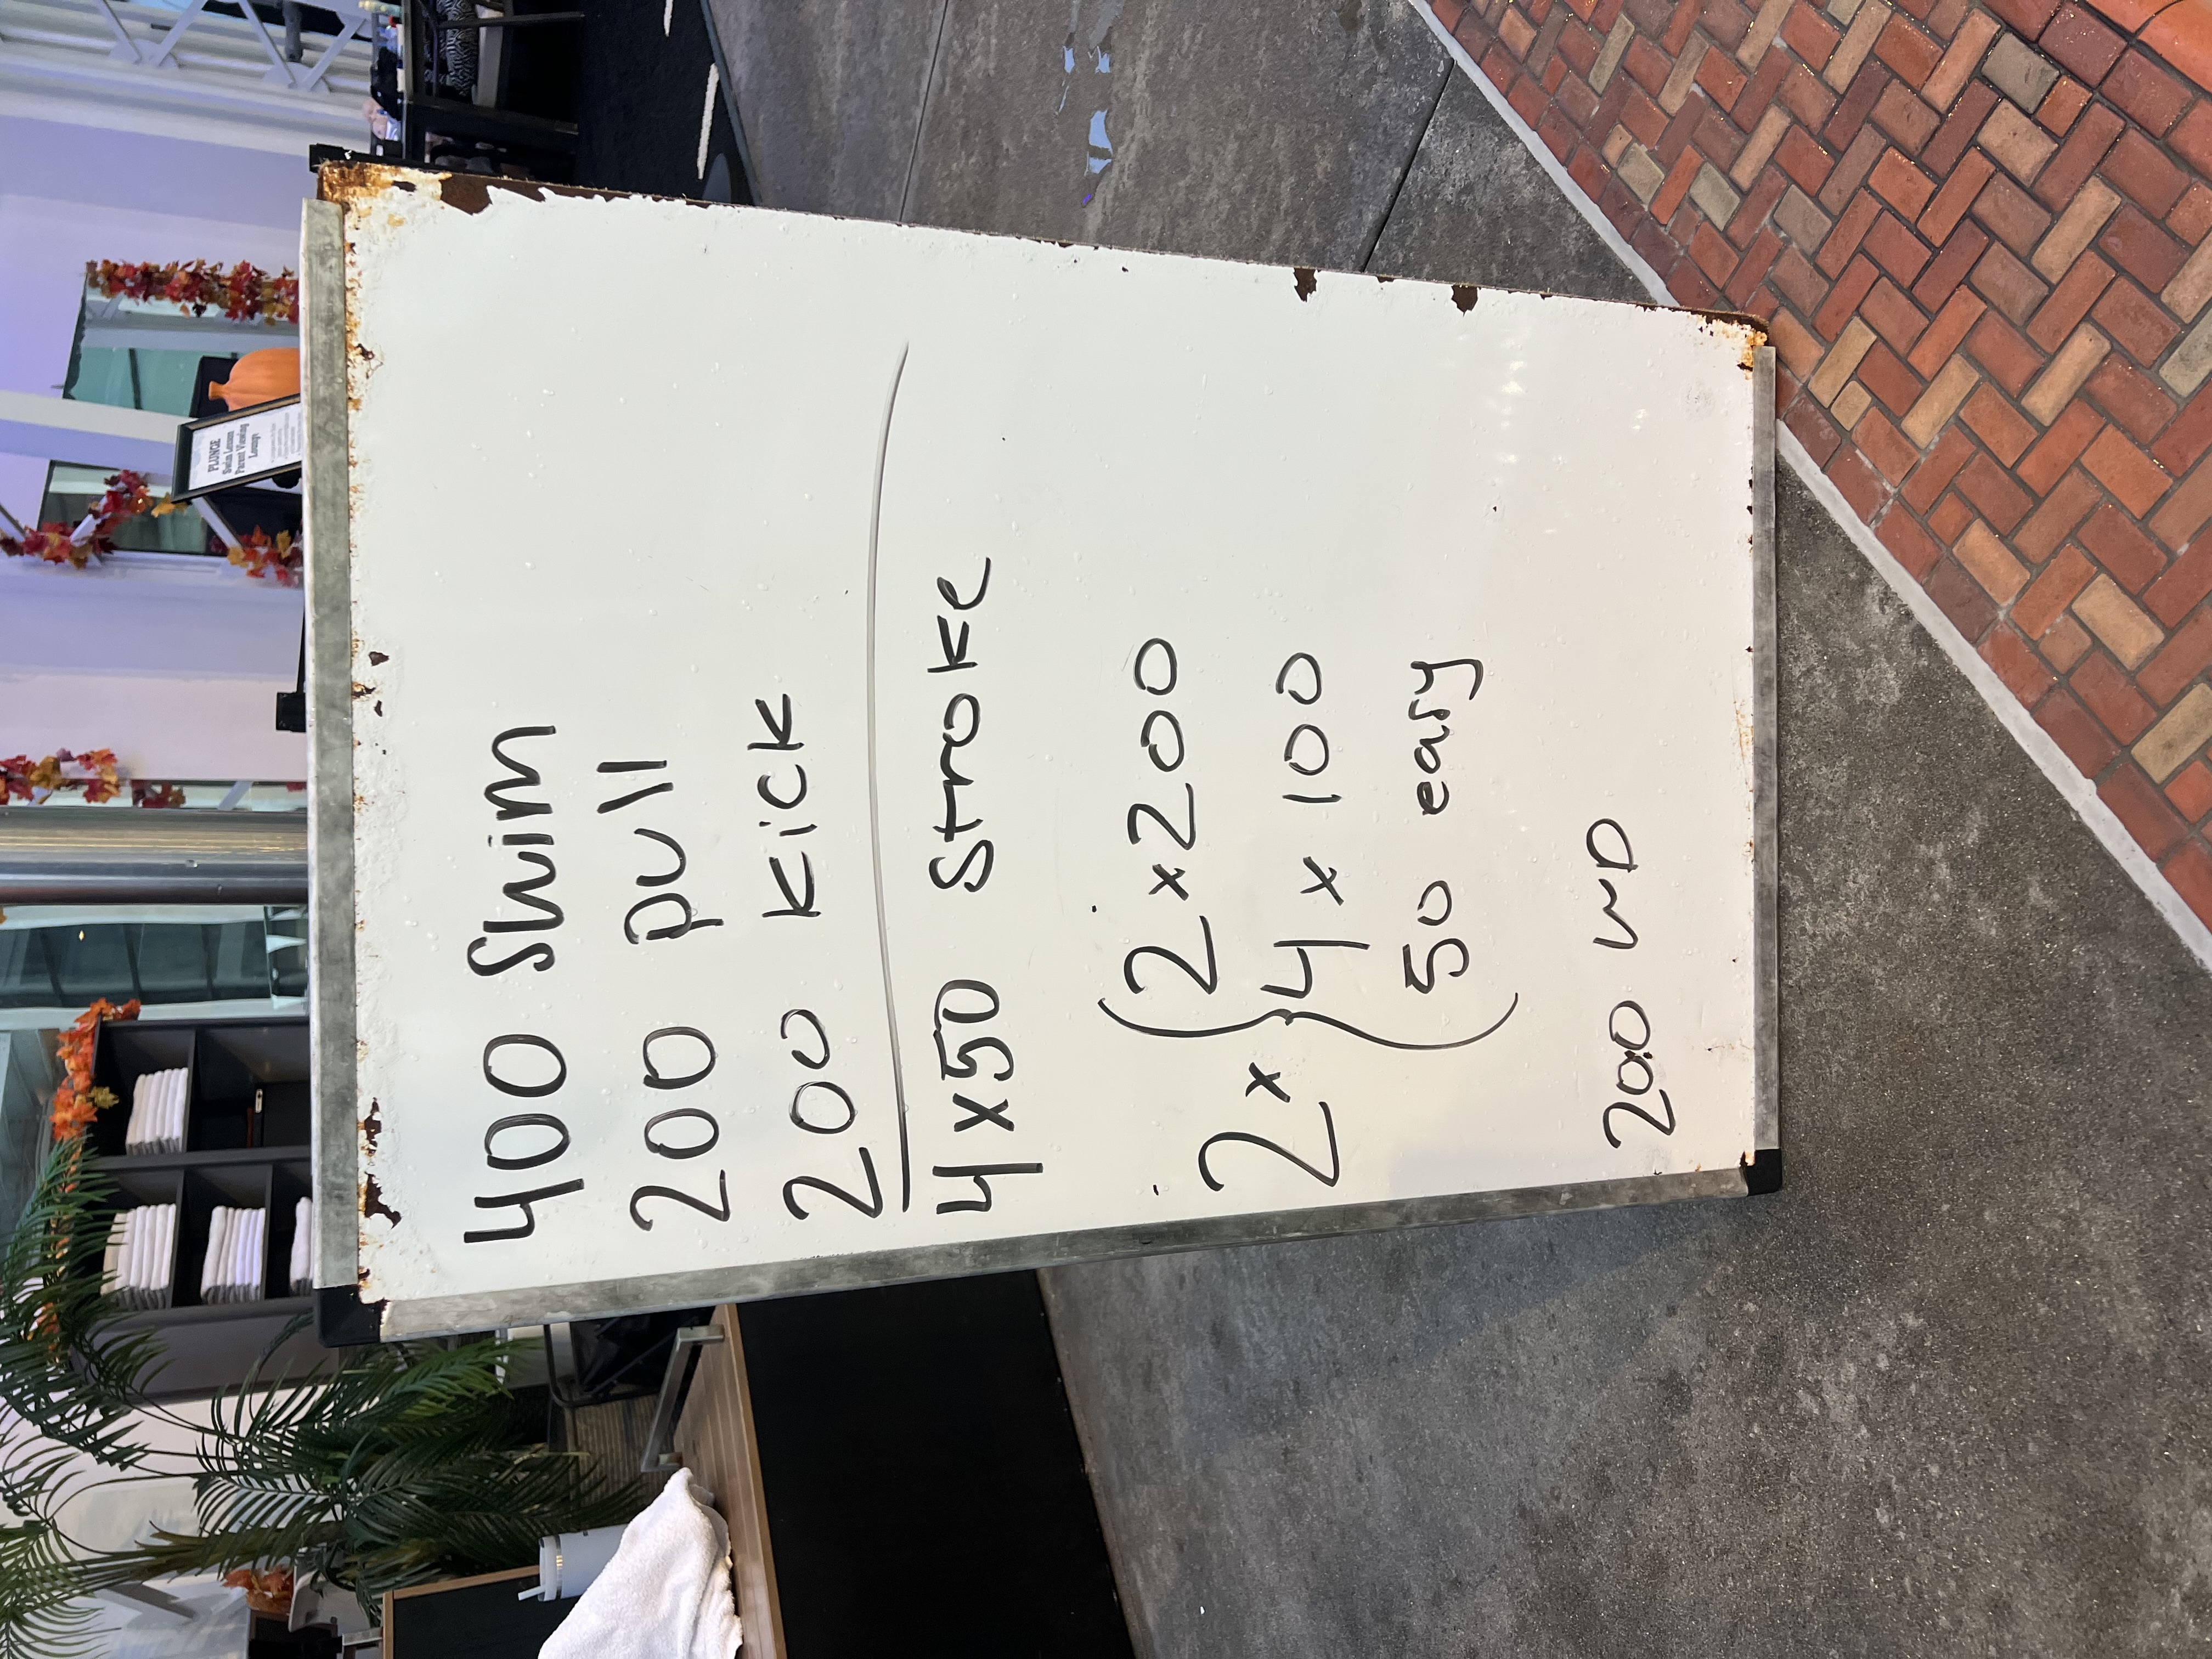 400 Swim
200 pull
200 kick
4x50 Stroke
2x { 2x200
4 x 100
50 easy
200 WD
PLUNGE
Swim Lesson
Parent Viewing
Lounge